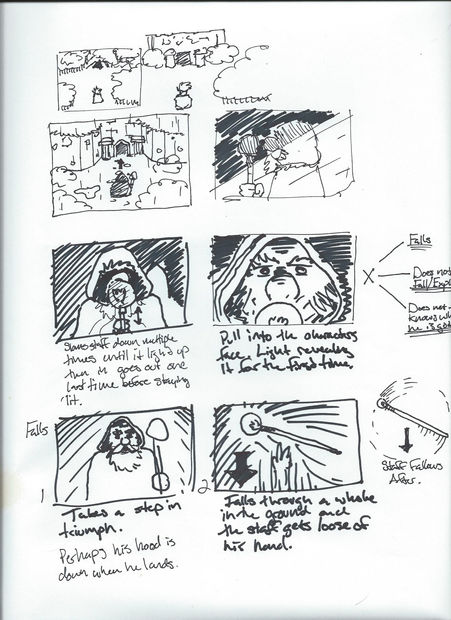 Slams staff down multiple
times until it lights up
then it goes out one
last time before staying
lit.
Pull into the characters
face. Light revealing
it for the first time.
X
Falls
Does not
Fall/Exp
Does not
knows wh
he is go
Falls
1
Takes a step in
triumph.
Perhaps his hood is
down when he lands.
2
Falls through a whole
in the ground and
the staff gets loose of
his hand.
Staff Follows
After.